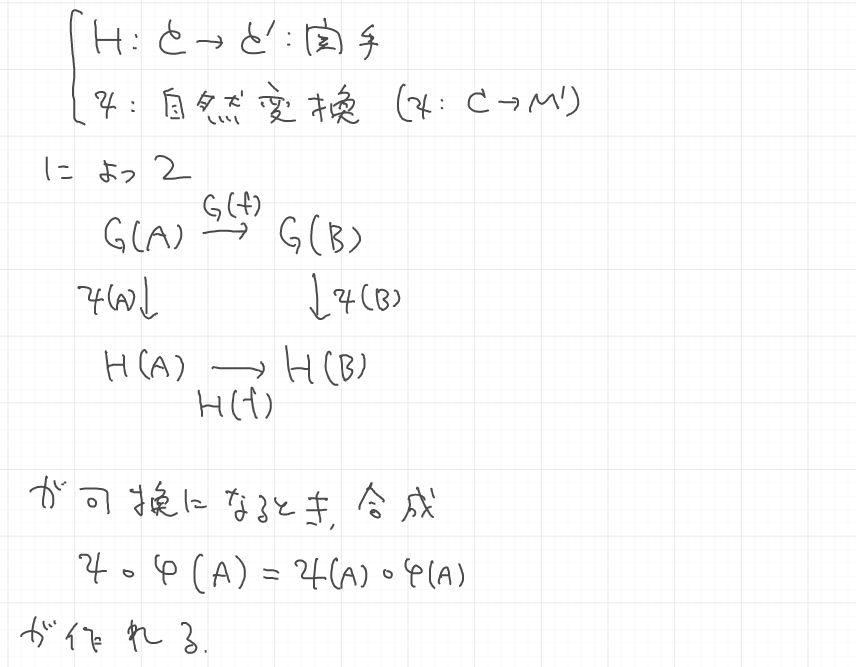 H: C → C': 函手
ψ: 自然変換 (ψ: C → M')
によって
G(A) G(f) → G(B)
ψ(A)↓ ↓ψ(B)
H(A) → H(B)
H(f)
が可換になるとき, 合成
ψ∘φ(A) = ψ(A)∘φ(A)
が作れる.